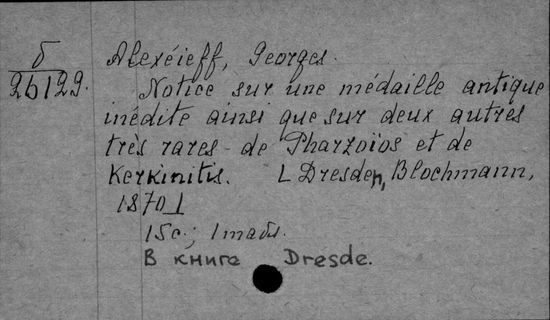 б
26129.
Alexéieff, Georges.
Notice sur une médaille antique
inédite ainsi que sur deux autres
très rares de Pharzoïos et de
Kerkinitis. [Dresden, Blochmann,
1870]
15с.; 1табл.
В книге Dresde.